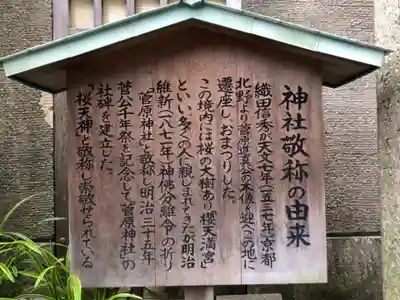 神社敬称の由来
織田信秀が天文七年(一五三七年)京都
北野より菅原道真公の木像を迎へこの地に
遷座しおまつりした。
この境内には桜の大樹あり「櫻天満宮」
といい、多くの人に親しまれてきたが明治
維新(一八七一年)神佛分離令の折り
「菅原神社」と敬称し明治三十五年
菅公千年祭を記念して「菅原神社」の
社碑を建立した。
「桜天神」と敬称し崇敬せられている